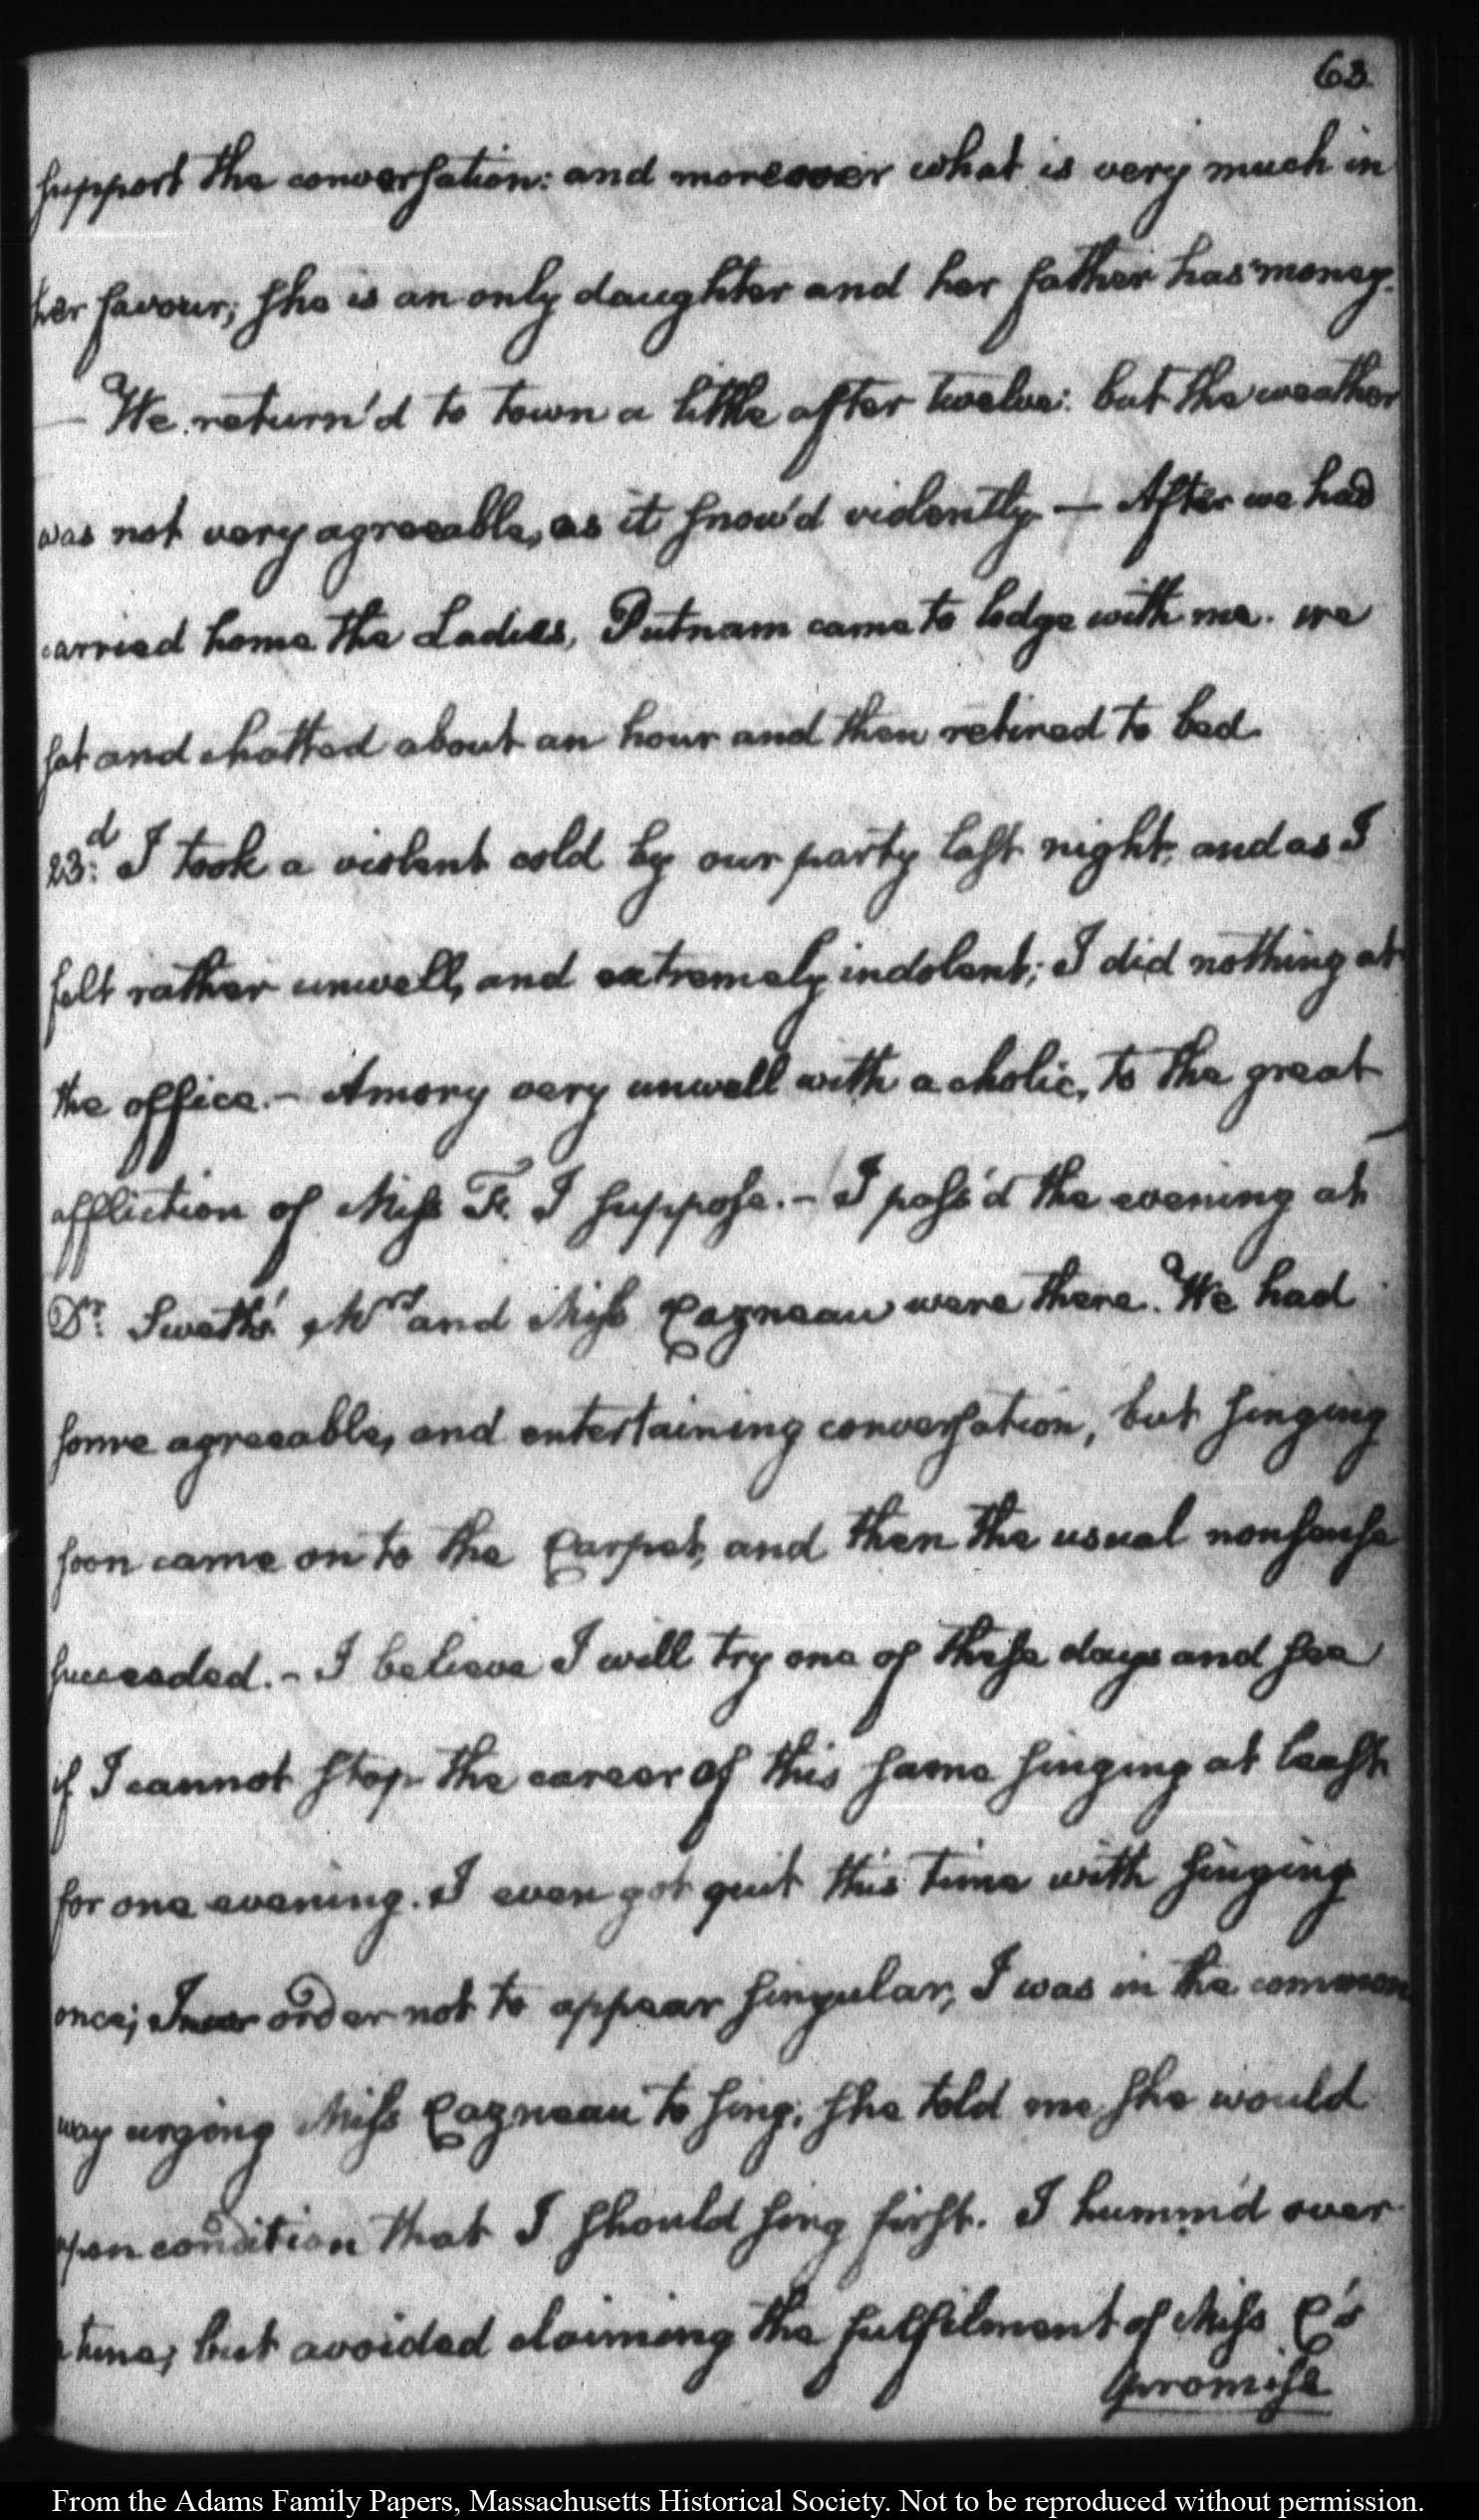 63
support the conversation: and moreover what is very much in
her favour; she is an only daughter and her father has money.
— We return'd to town a little after twelve: but the weather
was not very agreeable, as it snow'd violently — After we had
carried home the Ladies, Putnam came to lodge with me. we
sat and chatted about an hour and then retired to bed.
23:d I took a violent cold by our party last night, and as I
felt rather unwell, and extremely indolent; I did nothing at
the office. — Amory very unwell with a cholic, to the great
affliction of Miss F. I suppose. — I pass'd the evening at
Dr: Swett's. Mrs and Miss Cazneau were there. We had
some agreeable, and entertaining conversation, but singing
soon came on to the Carpet, and then the usual nonsense
succeeded. — I believe I will try one of these days and see
if I cannot stop the career of this same singing at least
for one evening. I even got quit this time with singing
once; In order not to appear singular, I was in the common
way urging Miss Cazneau to sing; she told me she would
upon condition that I should sing first. I humm'd over
a tune; but avoided claiming the fulfilment of Miss C's
promise
From the Adams Family Papers, Massachusetts Historical Society. Not to be reproduced without permission.